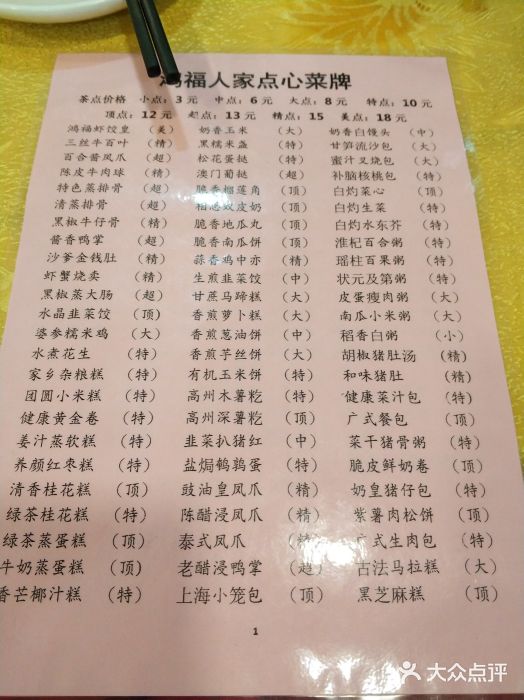 鸿福人家点心菜牌
茶点价格 小点：3 元 中点：6 元 大点：8 元 特点：10 元
顶点：12 元 超点：13 元 精点：15 美点：18 元
鸿福虾饺皇 （美） 奶香玉米 （大） 奶香白馒头 （中）
三丝牛百叶 （精） 黑糯米盏 （特） 甘笋流沙包 （大）
百合酱凤爪 （超） 松花蛋挞 （特） 蜜汁叉烧包 （大）
陈皮牛肉球 （精） 澳门葡挞 （超） 补脑核桃包 （特）
特色蒸排骨 （超） 脆香榴莲角 （顶） 白灼菜心 （顶）
清蒸排骨 （超） 相思双皮奶 （特） 白灼生菜 （特）
黑椒牛仔骨 （精） 脆香地瓜丸 （顶） 白灼水东芥 （特）
酱香鸭掌 （超） 脆香南瓜饼 （顶） 淮杞百合粥 （特）
沙爹金钱肚 （精） 蒜香鸡中亦 （精） 瑶柱百果粥 （特）
虾蟹烧卖 （精） 生煎韭菜饺 （中） 状元及第粥 （特）
黑椒蒸大肠 （超） 甘蔗马蹄糕 （大） 皮蛋瘦肉粥 （大）
水晶韭菜饺 （顶） 香煎萝卜糕 （大） 南瓜小米粥 （大）
婆参糯米鸡 （大） 香煎葱油饼 （中） 稻香白粥 （小）
水煮花生 （特） 香煎芋丝饼 （大） 胡椒猪肚汤 （精）
家乡杂粮糕 （特） 有机玉米饼 （特） 和味猪肚 （精）
团圆小米糕 （特） 高州木薯籺 （特） 健康菜汁包 （特）
健康黄金卷 （特） 高州深薯籺 （顶） 广式餐包 （顶）
姜汁蒸软糕 （特） 韭菜扒猪红 （中） 菜干猪骨粥 （特）
养颜红枣糕 （特） 盐焗鹌鹑蛋 （特） 脆皮鲜奶卷 （顶）
清香桂花糕 （顶） 豉油皇凤爪 （精） 奶皇猪仔包 （特）
绿茶桂花糕 （特） 陈醋浸凤爪 （精） 紫薯肉松饼 （顶）
绿茶蒸蛋糕 （顶） 泰式凤爪 （精） 广式生肉包 （特）
牛奶蒸蛋糕 （顶） 老醋浸鸭掌 （超） 古法马拉糕 （大）
香芒椰汁糕 （特） 上海小笼包 （顶） 黑芝麻糕 （顶）
1
大众点评